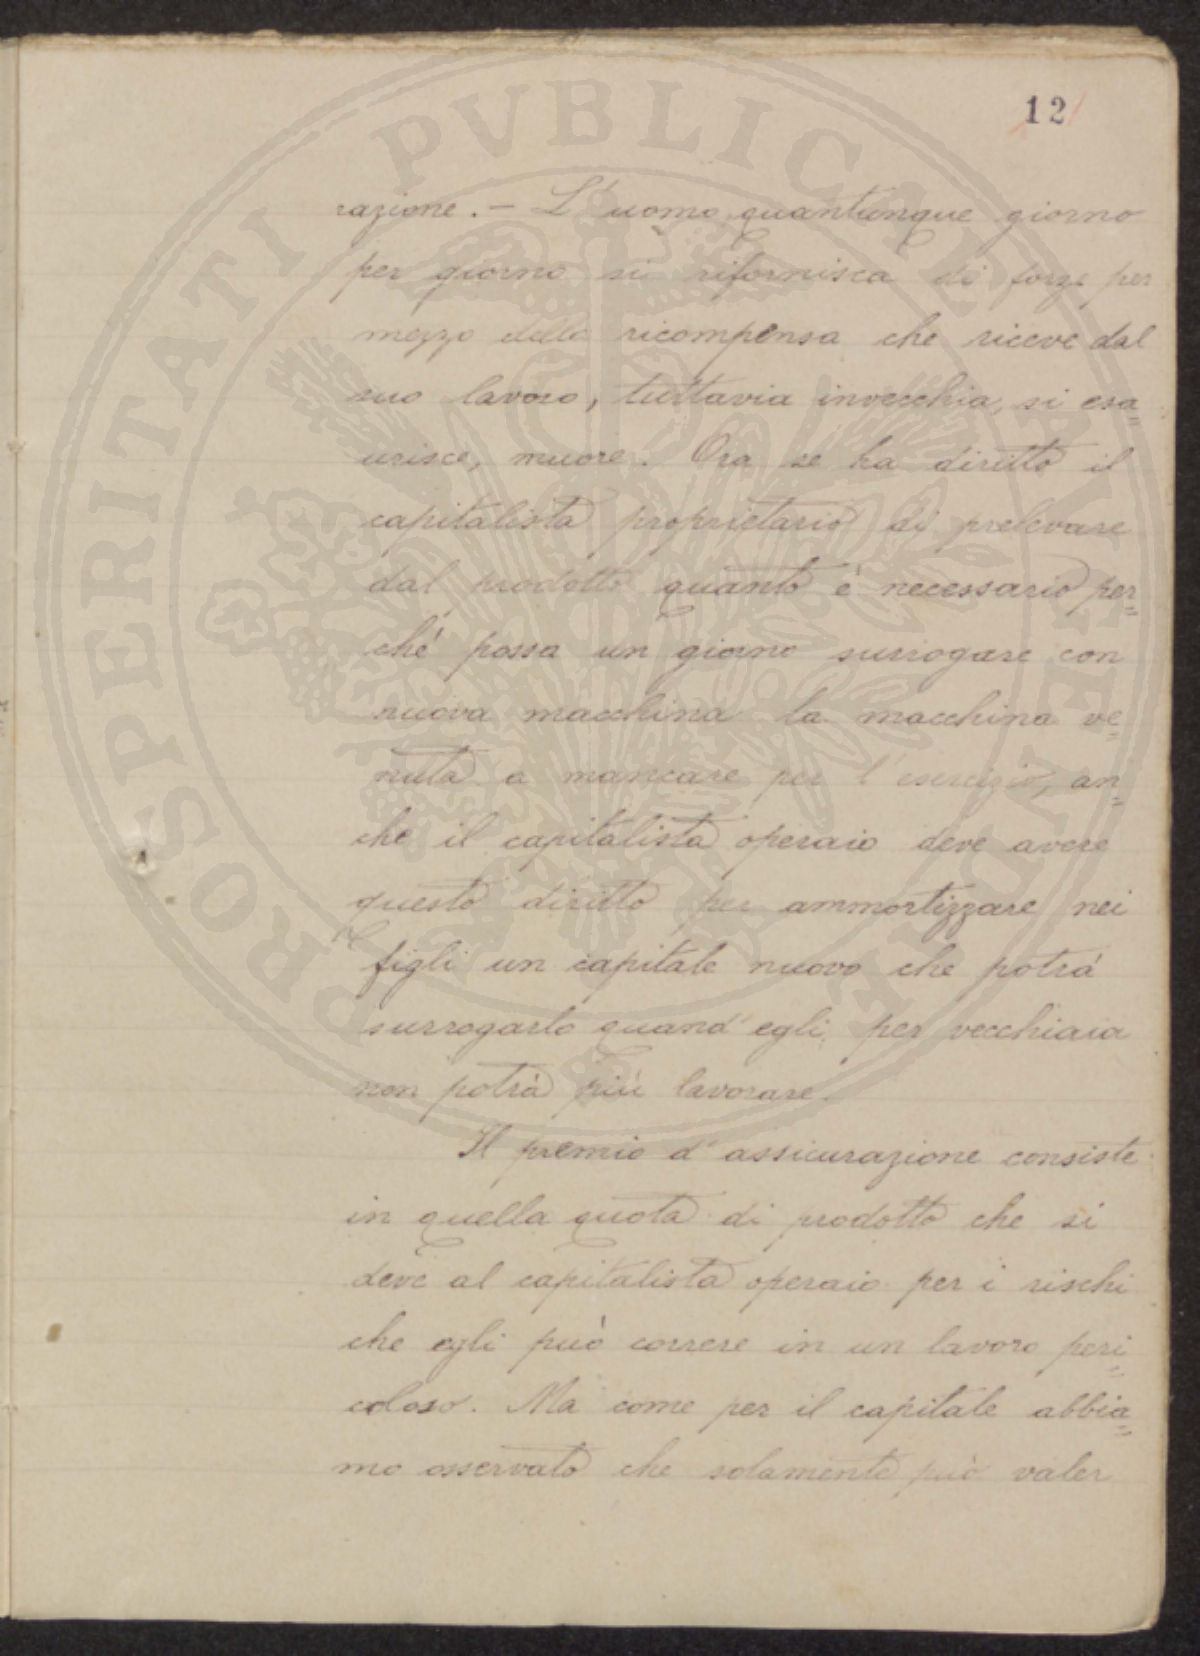 12
razione. — L'uomo quantunque giorno
per giorno si rifornisca di forze per
mezzo della ricompensa che riceve dal
suo lavoro, tuttavia invecchia, si esa=
urisce, muore. Ora se ha diritto il
capitalista proprietario di prelevare
dal prodotto quanto è necessario per=
ché possa un giorno surrogare con
nuova macchina la macchina ve=
nuta a mancare per l'esercizio, an=
che il capitalista operaio deve avere
questo diritto per ammortizzare nei
figli un capitale nuovo che potrà
surrogarlo quand'egli per vecchiaia
non potrà più lavorare.
Il premio d'assicurazione consiste
in quella quota di prodotto che si
deve al capitalista operaio per i rischi
che egli può correre in un lavoro peri=
coloso. Ma come per il capitale abbia=
mo osservato che solamente può valer
PROSPERITATI PVBLICAE AVGENDAE